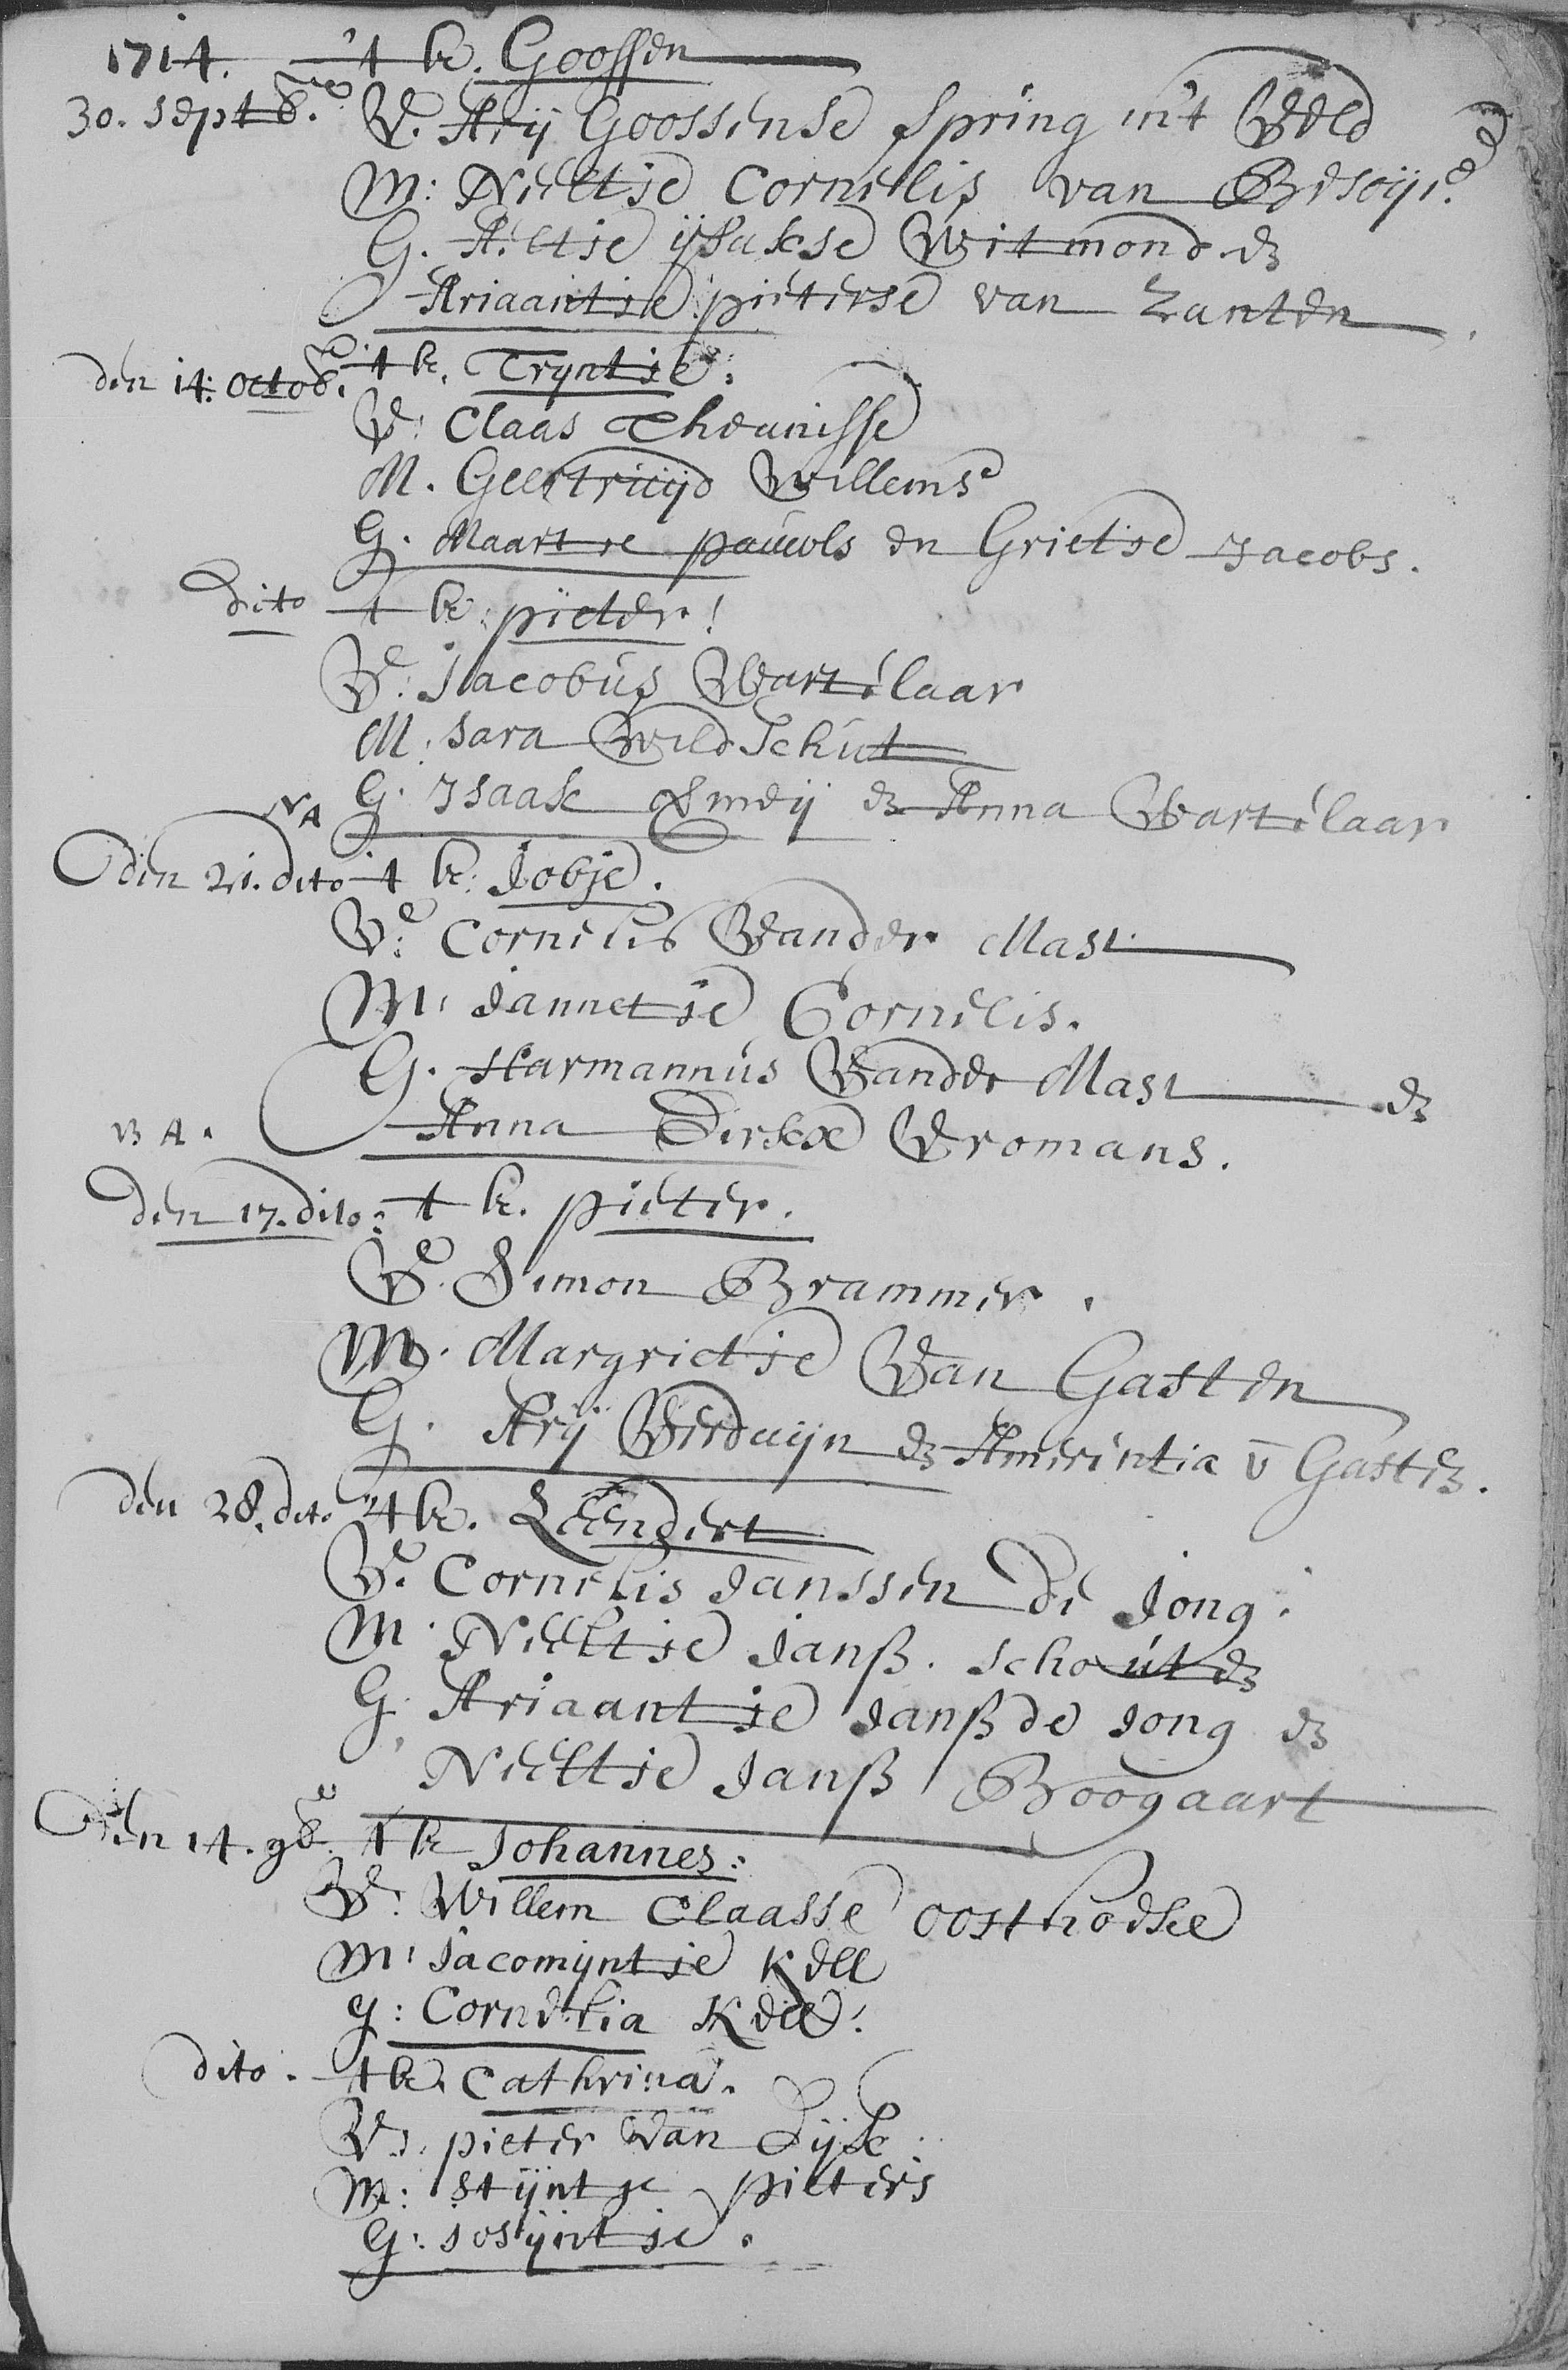 1714. 't k. Goossen
30. Septb.re V. Arij Goossense Spring in't Veld
M: Neeltje Cornelis van Besoije.
G. Aeltje ijsakse Witmond. en
Ariaantje pieterse van Zanten
den 14: Octob.r 't k. Tryntje:
V: Claas Theunisse
M. Geertruijd Willemse
G. Maartje pauwls en Grietje Jacobs.
dito t k: pieter!
V: Jacobus Wartelaar
M: Sara Wildschut
G. Isaak Smeij en Anna Wartelaar
NA
den 21. dito 't k: Jobje.
V: Cornelis Vander Mast
M: Jannetje Cornelis.
G. Harmannus Vander Mast en
VA. Anna Dirkse Vromans.
den 17. dito: t k. pieter.
V. Simon Brammer.
M. Margrietje Van Gasten
G. Arij Verduijn en Amerintia v Gasten.
den 28. dito 't k. Leendert
V. Cornelis Janssen de Jong.
M. Neeltje Janß. Schouten
G. Ariaantje Janß de Jong en
Neeltje Janß Boogaart
den 14. 9b.r t k Johannes:
V: Willem Claasse Oosthoeke
M: Jacomijntje Kell
g: Cornelia Kell.
dito. t k. Cathrina.
V: pieter van Dijk:
M: Stijntje pieters
G: Josijntje.